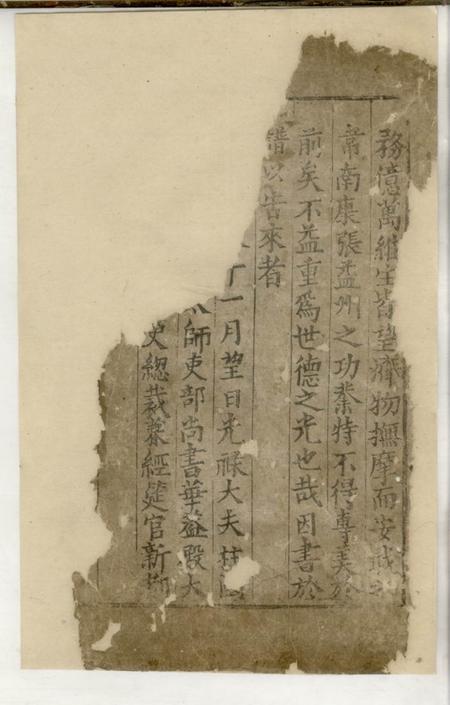 務億萬維生皆望濟物撫摩而安戢之
常南康張益州之功業特不得專美於
前矣不益重為世德之光也哉因書於
譜以告來者
一月望日光祿大夫柱國
師吏部尚書華蓋殿大
史總裁兼經筵官新